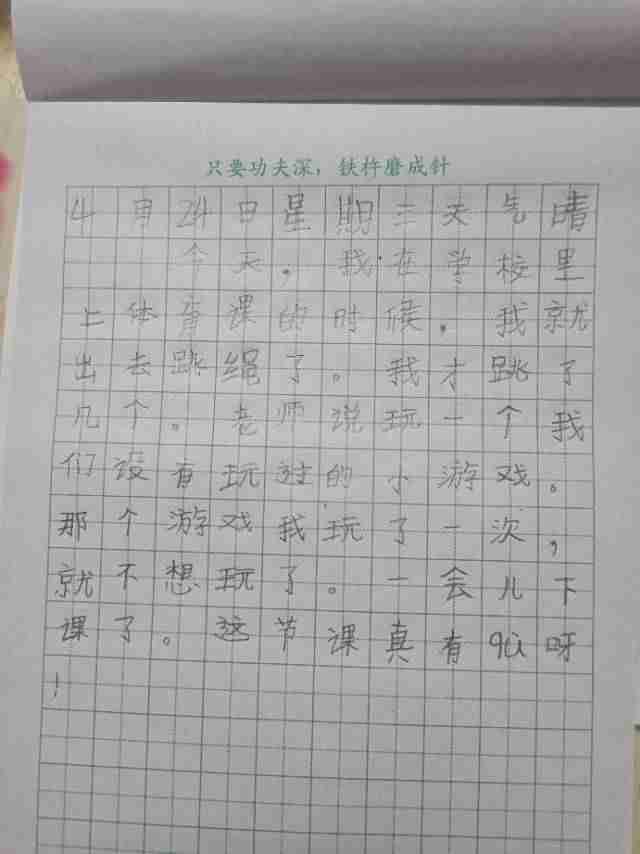 只要功夫深，铁杵磨成针
4月24日星期三天气晴
今天，我在学校里
上体育课的时候，我就
出去跳绳了。我才跳了
几个。老师说玩一个我
们没有玩过的小游戏。
那个游戏我玩了一次，
就不想玩了。一会儿下
课了。这节课真有qù呀
！